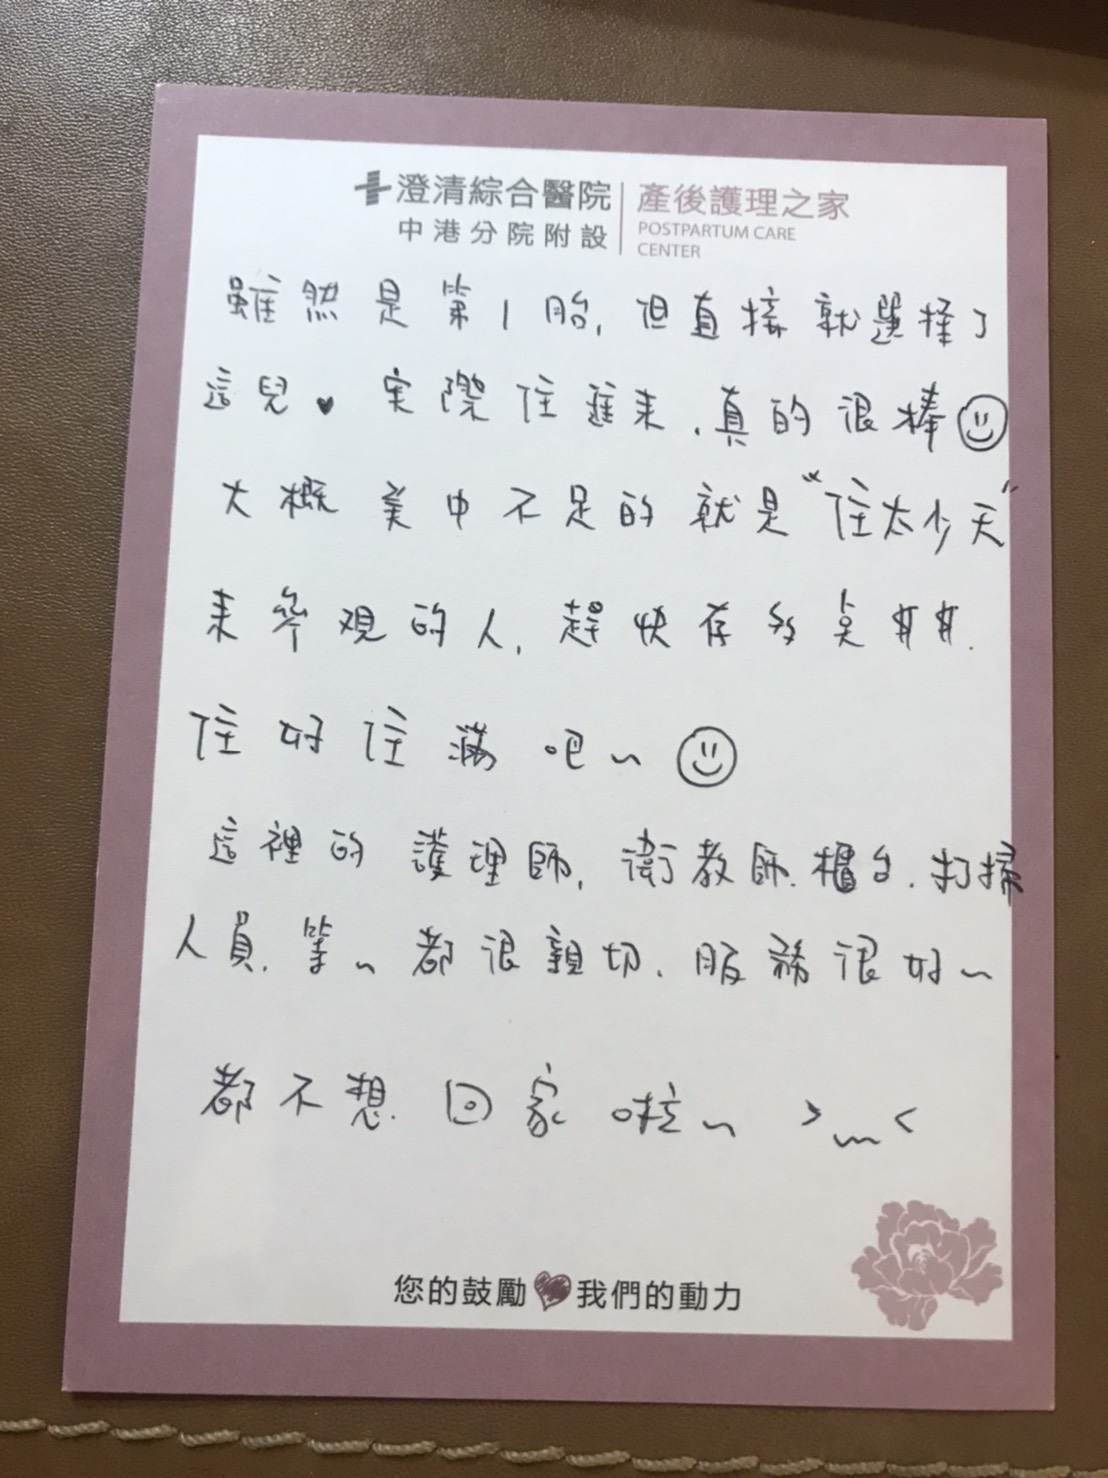 澄清綜合醫院
中港分院附設
產後護理之家
POSTPARTUM CARE
CENTER
雖然是第1胎,但直接就選擇了
這兒♥ 実際住進来,真的很棒☺
大概美中不足的就是"住太少天"
来參观的人,趕快存多点$$.
住好住滿吧~☺
這裡的護理師,衛教師.櫃台.打掃
人員.等~都很親切.服務很好~
都不想回家啦~ >﹏<
您的鼓勵♥我們的動力